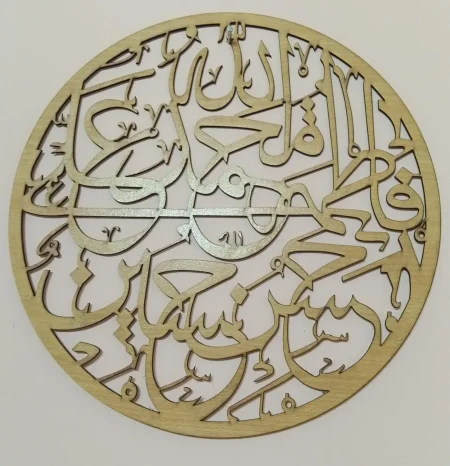 الله
محمد
علی
فاطمة
حسن حسین